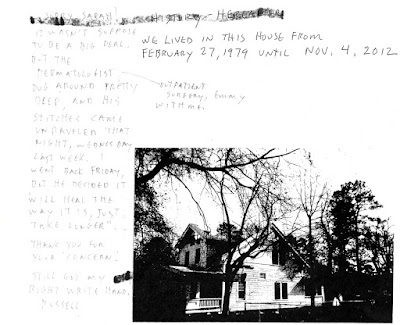 SORRY SARAH!
IT WASN'T SUPPOSE
TO BE A BIG DEAL.
BUT THE
DERMATOLOGIST
DUG AROUND PRETTY
DEEP, AND HIS
STITCHES CAME
UNRAVELED THAT
NIGHT, WEDNESDAY
LAST WEEK. I
WENT BACK FRIDAY,
BUT HE DECIDED IT
WILL HEAL THE
WAY IT IS, JUST
"TAKE LONGER"..
THANK YOU FOR
YOUR CONCERN!
STILL GOT MY
RIGHT WRITE HAND.
RUSSELL
OUTPATIENT
SURGERY, Emmy
WITH ME.
WE LIVED IN THIS HOUSE FROM
FEBRUARY 27, 1979 UNTIL NOV. 4, 2012